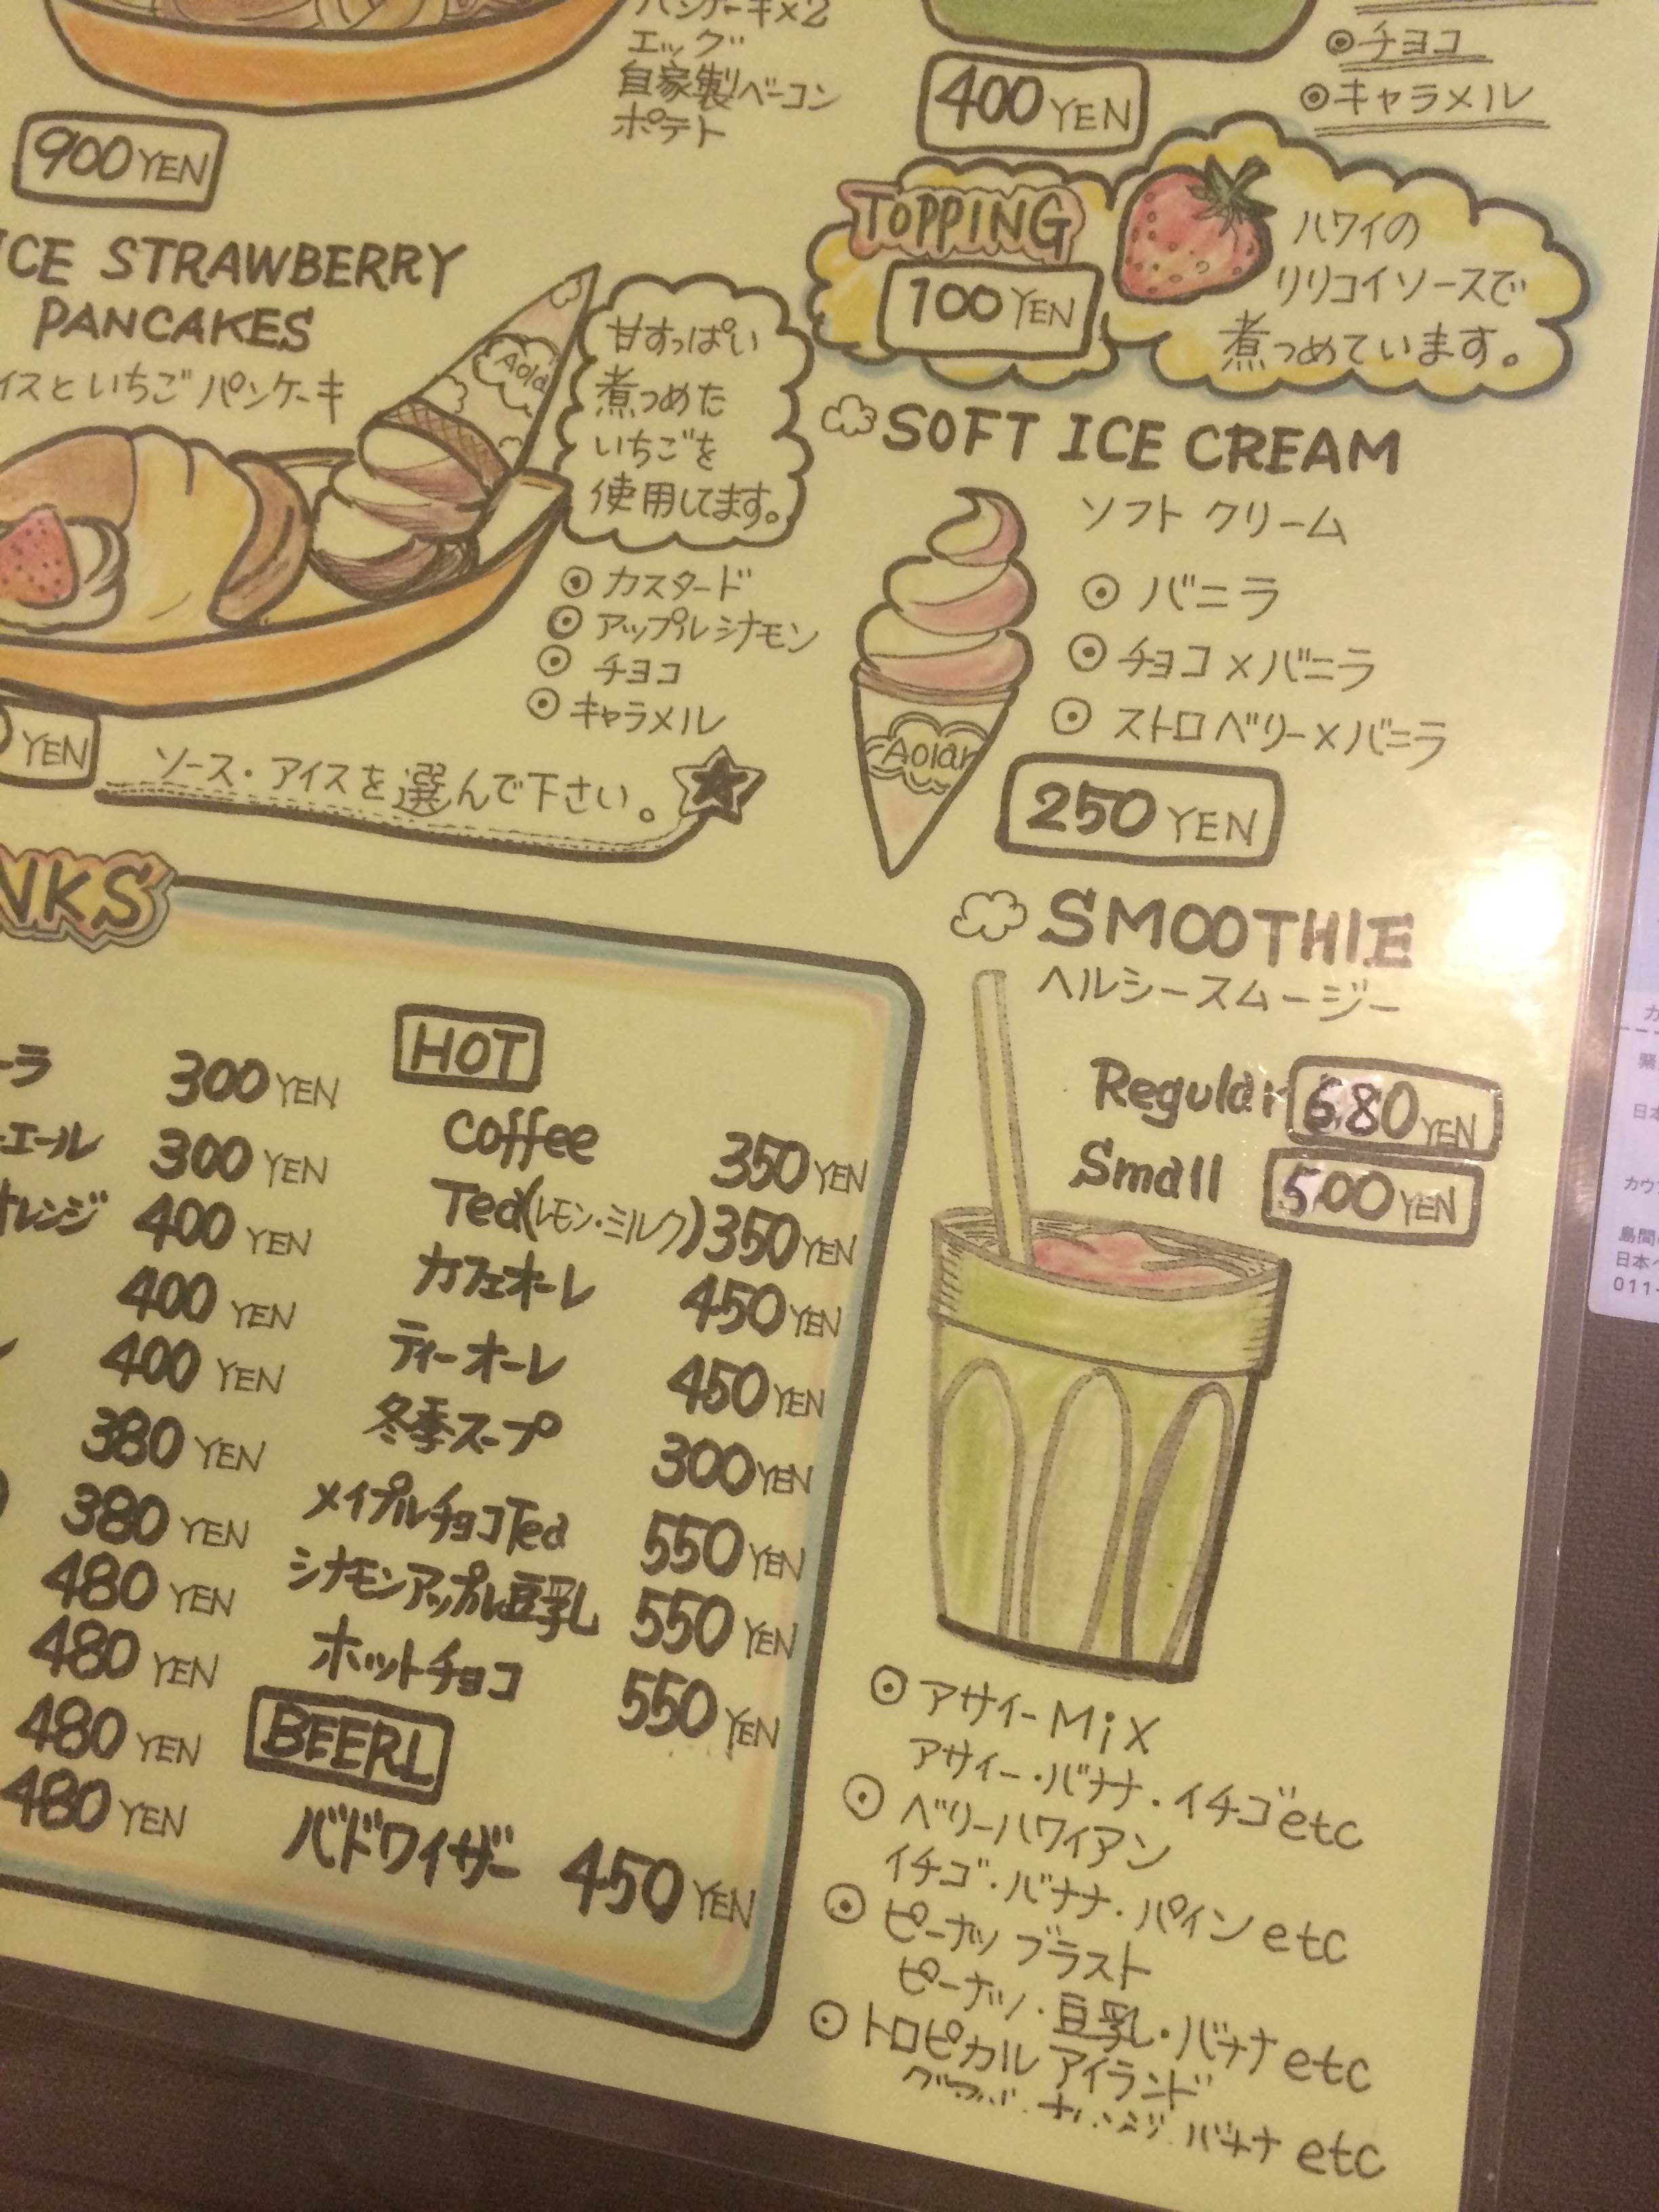 パンケーキ×2
エッグ
自家製ベーコン
ポテト
900 YEN
ICE STRAWBERRY
PANCAKES
イスといちごパンケーキ
Aola
甘すっぱい
煮つめた
いちごを
使用してます。
◎カスタード
◎アップルシナモン
◎チョコ
◎キャラメル
YEN
ソース・アイスを選んで下さい。
400 YEN
◎チョコ
◎キャラメル
TOPPING
100 YEN
ハワイの
リリコイソースで
煮つめています。
SOFT ICE CREAM
ソフトクリーム
◎バニラ
◎チョコ×バニラ
◎ストロベリー×バニラ
Aolan
250 YEN
NKS
ーラ 300 YEN
ーエール 300 YEN
オレンジ 400 YEN
400 YEN
400 YEN
380 YEN
380 YEN
480 YEN
480 YEN
480 YEN
480 YEN
HOT
Coffee 350 YEN
Tea(レモン・ミルク) 350 YEN
カフェオーレ 450 YEN
ティーオーレ 450 YEN
冬季スープ 300 YEN
メイプルチョコTea 550 YEN
シナモンアップル豆乳 550 YEN
ホットチョコ 550 YEN
BEERL
バドワイザー 450 YEN
SMOOTHIE
ヘルシースムージー
Regular 680 YEN
Small 500 YEN
◎アサイーMiX
アサイー・バナナ・イチゴetc
◎ベリーハワイアン
イチゴ・バナナ・パインetc
◎ピーナッツブラスト
ピーナッツ・豆乳・バナナetc
◎トロピカルアイランド
バナナetc
カウ
島間
日本
011-